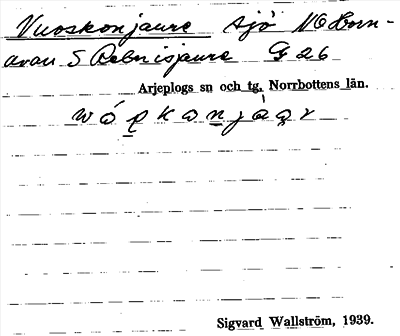 Vuoskonjaure sjö NO Horn-
avan S Rebnisjaure G 26
Arjeplogs sn och tg. Norrbottens län.
Sigvard Wallström, 1939.